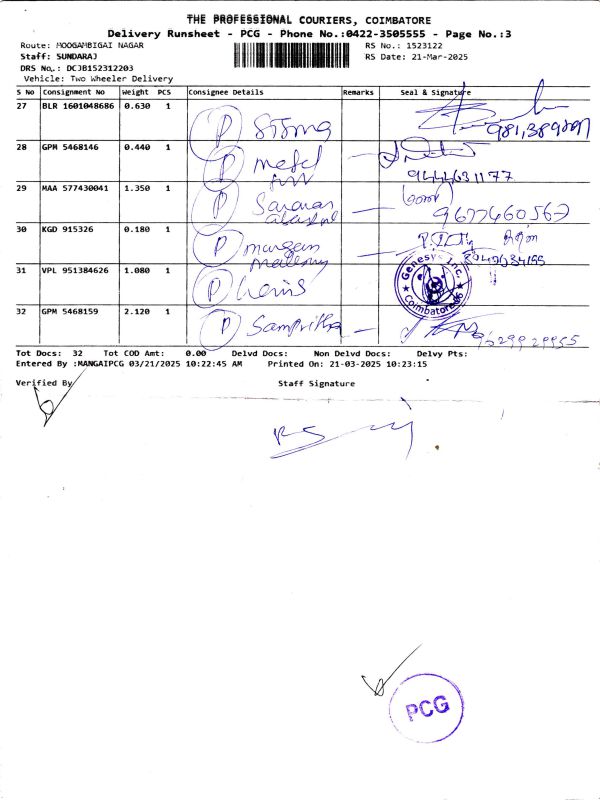 THE PROFESSIONAL COURIERS, COIMBATORE
Delivery Runsheet - PCG - Phone No.:0422-3505555 - Page No.:3
Route: MOOGAMBIGAI NAGAR
RS No.: 1523122
Staff: SUNDARAJ
RS Date: 21-Mar-2025
DRS No.: DCJB152312203
Vehicle: Two Wheeler Delivery
S No Consignment No Weight PCS Consignee Details Remarks Seal & Signature
27 BLR 1601048686 0.630 1 P
28 GPM 5468146 0.440 1 P
9444631177
29 MAA 577430041 1.350 1 P Saravan
9677460567
30 KGD 915326 0.180 1 P
31 VPL 951384626 1.080 1 P
Genesys Inc. Coimbatore
32 GPM 5468159 2.120 1 P Sampritha
9629929955
Tot Docs: 32 Tot COD Amt: 0.00 Delvd Docs: Non Delvd Docs: Delvy Pts:
Entered By :MANGAIPCG 03/21/2025 10:22:45 AM Printed On: 21-03-2025 10:23:15
Verified By Staff Signature
PCG